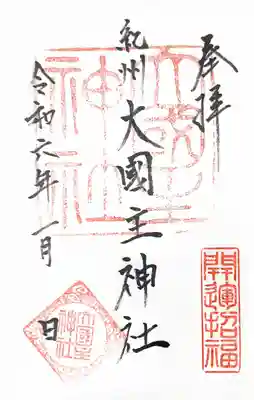 奉拝
紀州
大國主神社
令和六年一月 日
開運招福
大国主
神社